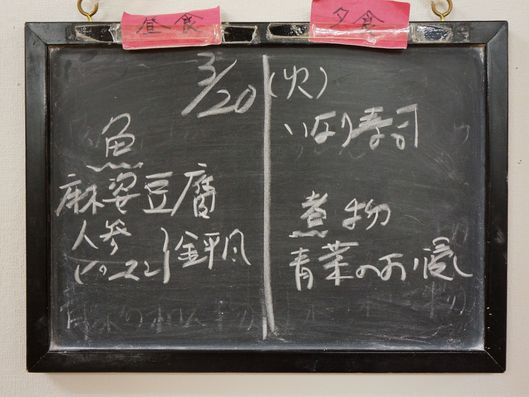 昼食
夕食
3/20(火)
魚
麻婆豆腐
人参
いなり寿司
煮物
青菜のお浸し